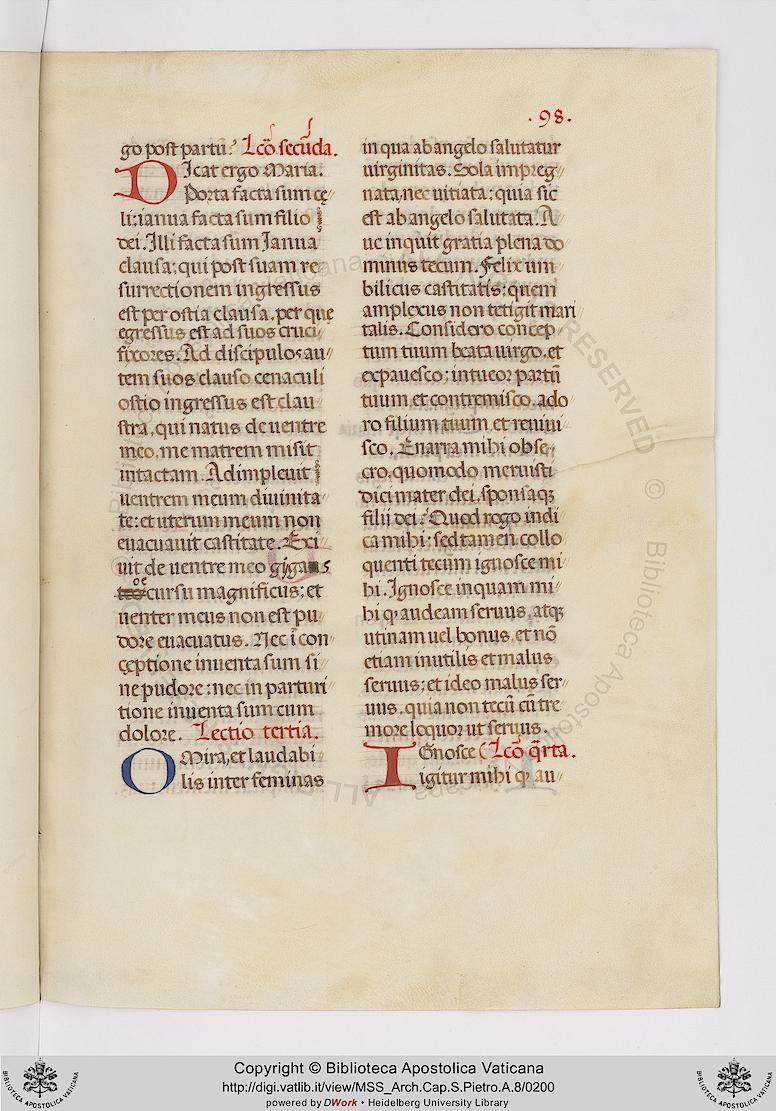 .98.
go post partū? Lcō secūda.
Dicat ergo Maria.
Porta facta sum cę
li: ianua facta sum filio
dei. Illi facta sum Ianua
clausa: qui post suam re
surrectionem ingressus
est per ostia clausa, per quę
egressus est ad suos cruci
fixores. Ad discipulos au
tem suos clauso cenaculi
ostio ingressus est clau
stra, qui natus de uentre
meo, me matrem misit
intactam. Adimpleuit
uentrem meum diuinita
te: et uterum meum non
euacuauit castitate. Exi
uit de uentre meo gigas
cursu magnificus: et
uenter meus non est pu
dore euacuatus. Nec ī con
cęptione inuenta sum si
ne pudore: nec in parturi
tione inuenta sum cum
dolore. Lectio tertia.
O Mira, et laudabi
lis inter feminas
in qua ab angelo salutatur
uirginitas. Sola impreg
nata, nec uitiata: quia sic
est ab angelo salutata. A
ue inquit gratia plena do
minus tecum. Felix um
bilicus castitatis: quem
amplexus non tetigit mari
talis. Considero concep
tum tuum beata uirgo, et
expauesco: intueor partū
tuum et contremisco, ado
ro filium tuum, et reuiui
sco. Enarra mihi obse
cro, quomodo meruisti
dici mater dei, sponsaqȝ
filii dei? Quod rogo indi
ca mihi: sed tamen collo
quenti tecum ignosce mi
hi. Ignosce inquam mi
hi ꝙ audeam seruus, atqȝ
utinam uel bonus, et nō
etiam inutilis et malus
seruus: et ideo malus ser
uus, quia non tecū cū tre
more loquor ut seruus.
IGnosce Lcō q̄rta.
igitur mihi ꝙ au
Copyright © Biblioteca Apostolica Vaticana
http://digi.vatlib.it/view/MSS_Arch.Cap.S.Pietro.A.8/0200
powered by DWork • Heidelberg University Library
BIBLIOTECA APOSTOLICA VATICANA
BIBLIOTECA APOSTOLICA VATICANA